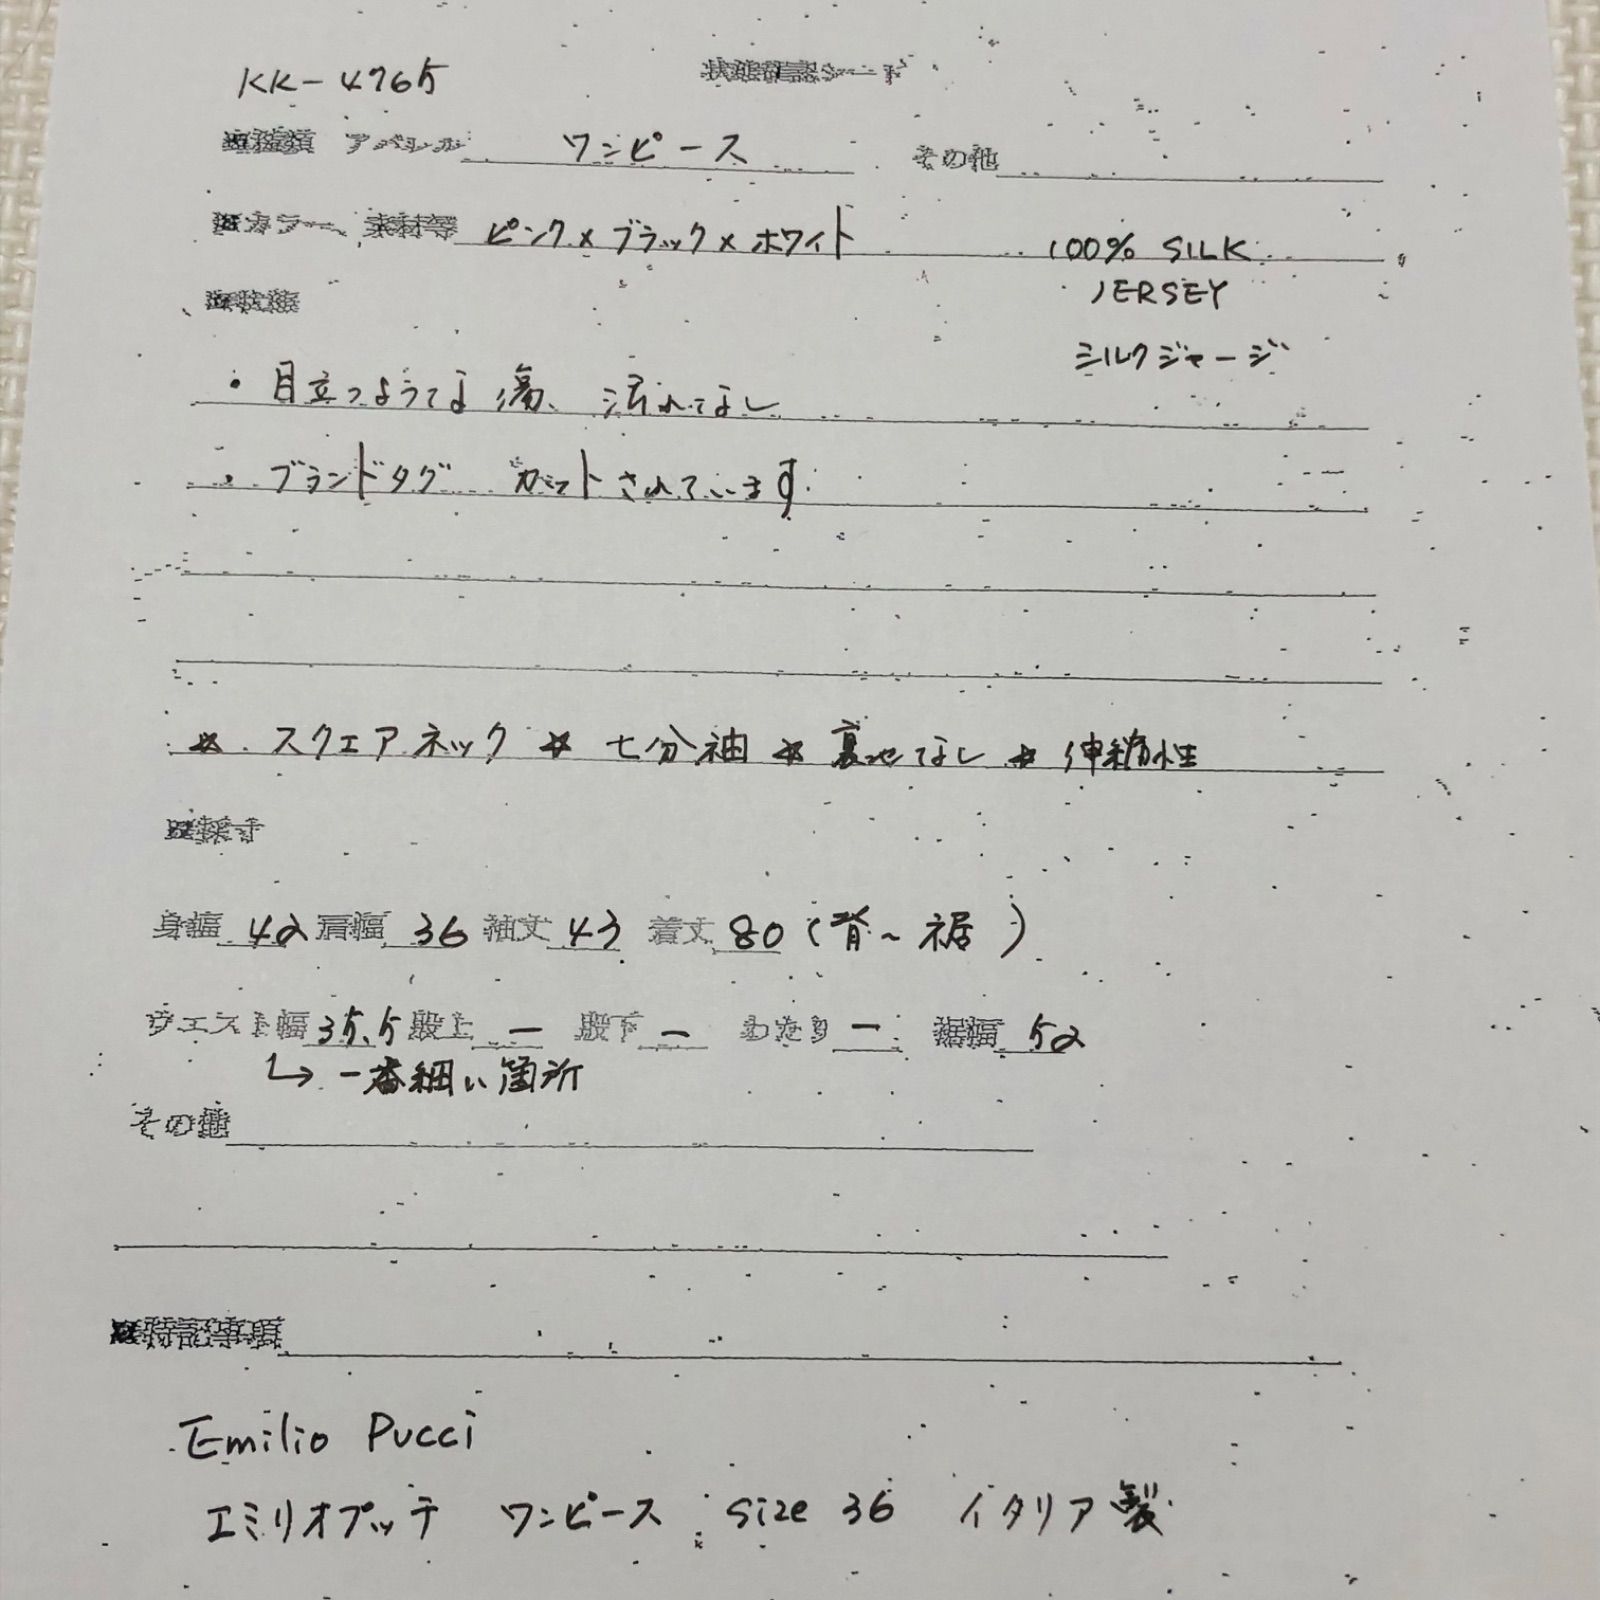 KK-4765 状態確認シート
■種類 アパレル ワンピース その他
■カラー、素材等 ピンク×ブラック×ホワイト 100% SILK
JERSEY
■状態
シルクジャージ
・目立つような傷、汚れなし
・ブランドタグ カットされています
☆ スクエアネック ☆ 七分袖 ☆ 裏地なし ☆ 伸縮性
■採寸
身幅 42 肩幅 36 袖丈 43 着丈 80 (背~裾)
ウエスト幅 35.5 股上 ー 股下 ー わたり ー 裾幅 52
↳ 一番細い箇所
その他
■特記事項
Emilio Pucci
エミリオプッチ ワンピース size 36 イタリア製